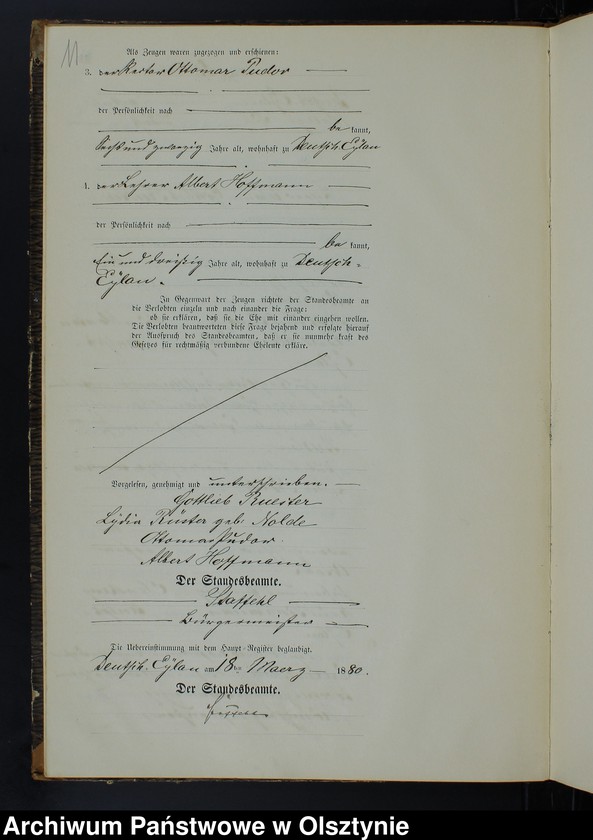 11
Als Zeugen waren zugezogen und erschienen:
3. der Rektor Ottomar Pudor
der Persönlichkeit nach
be kannt,
sechs und zwanzig Jahre alt, wohnhaft zu Deutsch-Eylau
4. der Lehrer Albert Hoffmann
der Persönlichkeit nach
be kannt,
ein und dreißig Jahre alt, wohnhaft zu Deutsch-
Eylau.
In Gegenwart der Zeugen richtete der Standesbeamte an
die Verlobten einzeln und nach einander die Frage:
ob sie erklären, daß sie die Ehe mit einander eingehen wollen.
Die Verlobten beantworteten diese Frage bejahend und erfolgte hierauf
der Ausspruch des Standesbeamten, daß er sie nunmehr kraft des
Gesetzes für rechtmäßig verbundene Eheleute erkläre.
Vorgelesen, genehmigt und unterschrieben.
Gottlieb Ruester
Lydia Rüster geb. Nolde
Ottomar Pudor
Albert Hoffmann
Der Standesbeamte.
Staffehl
Bürgermeister
Die Uebereinstimmung mit dem Haupt-Register beglaubigt.
Deutsch-Eylau am 18ten Maerz 1880.
Der Standesbeamte.
Archiwum Państwowe w Olsztynie